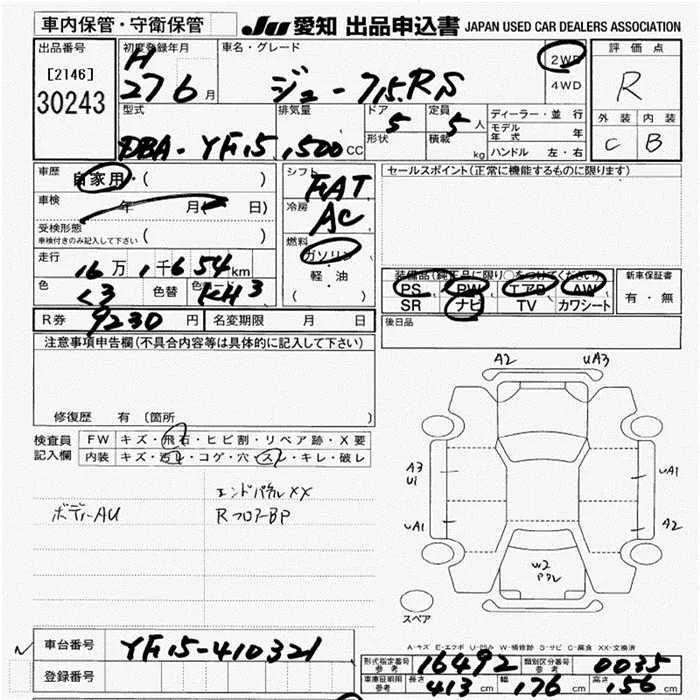 車内保管・守衛保管 Ju 愛知 出品申込書 JAPAN USED CAR DEALERS ASSOCIATION
出品番号
[2146]
30243
初度登録年月
H
27 6 月
車名・グレード
ジュ-ク 15RS
2WD
4WD
評価点
R
外装 内装
C B
型式
DBA-YF15
排気量
1,500 CC
ドア
5
形状
定員
5 人
積載 kg
ディーラー・並行
モデル年式 年
ハンドル 左・右
車歴
自家用・( )
車検
年 月( 日)
受検形態
車検付きのみ記入して下さい ( )
走行
16 万 1 千 654 km
色
クロ
色替
色コード
KH3
R券 9230 円 名変期限 月 日
シフト
FAT
冷房
AC
燃料
ガソリン
軽・油
( )
セールスポイント(正常に機能するものに限ります)
装備品(純正品に限り○をつけてください) 新車保証書
PS PW エアB AW
SR ナビ TV カワシート
有・無
後日品
注意事項申告欄(不具合内容等は具体的に記入して下さい)
修復歴 有 〔箇所 〕
検査員
記入欄
FW キズ・飛石・ヒビ割・リペア跡・X要
内装 キズ・汚れ・コゲ・穴・スレ・キレ・破レ
エンドパネルXX
ボディーAU RフロアーBP
A2 UA3
A3
U1
UA1
UA1
A2
W2
スペア
A-キズ E-エクボ U-凹み W-補修跡 S-サビ C-腐食 XX-交換済
車台番号 YF15-410321
登録番号
形式指定番号 参考 16492 類別区分番号 参考 0035
車庫証明用 参考 長さ 413 cm 幅 176 cm 高さ 156 cm